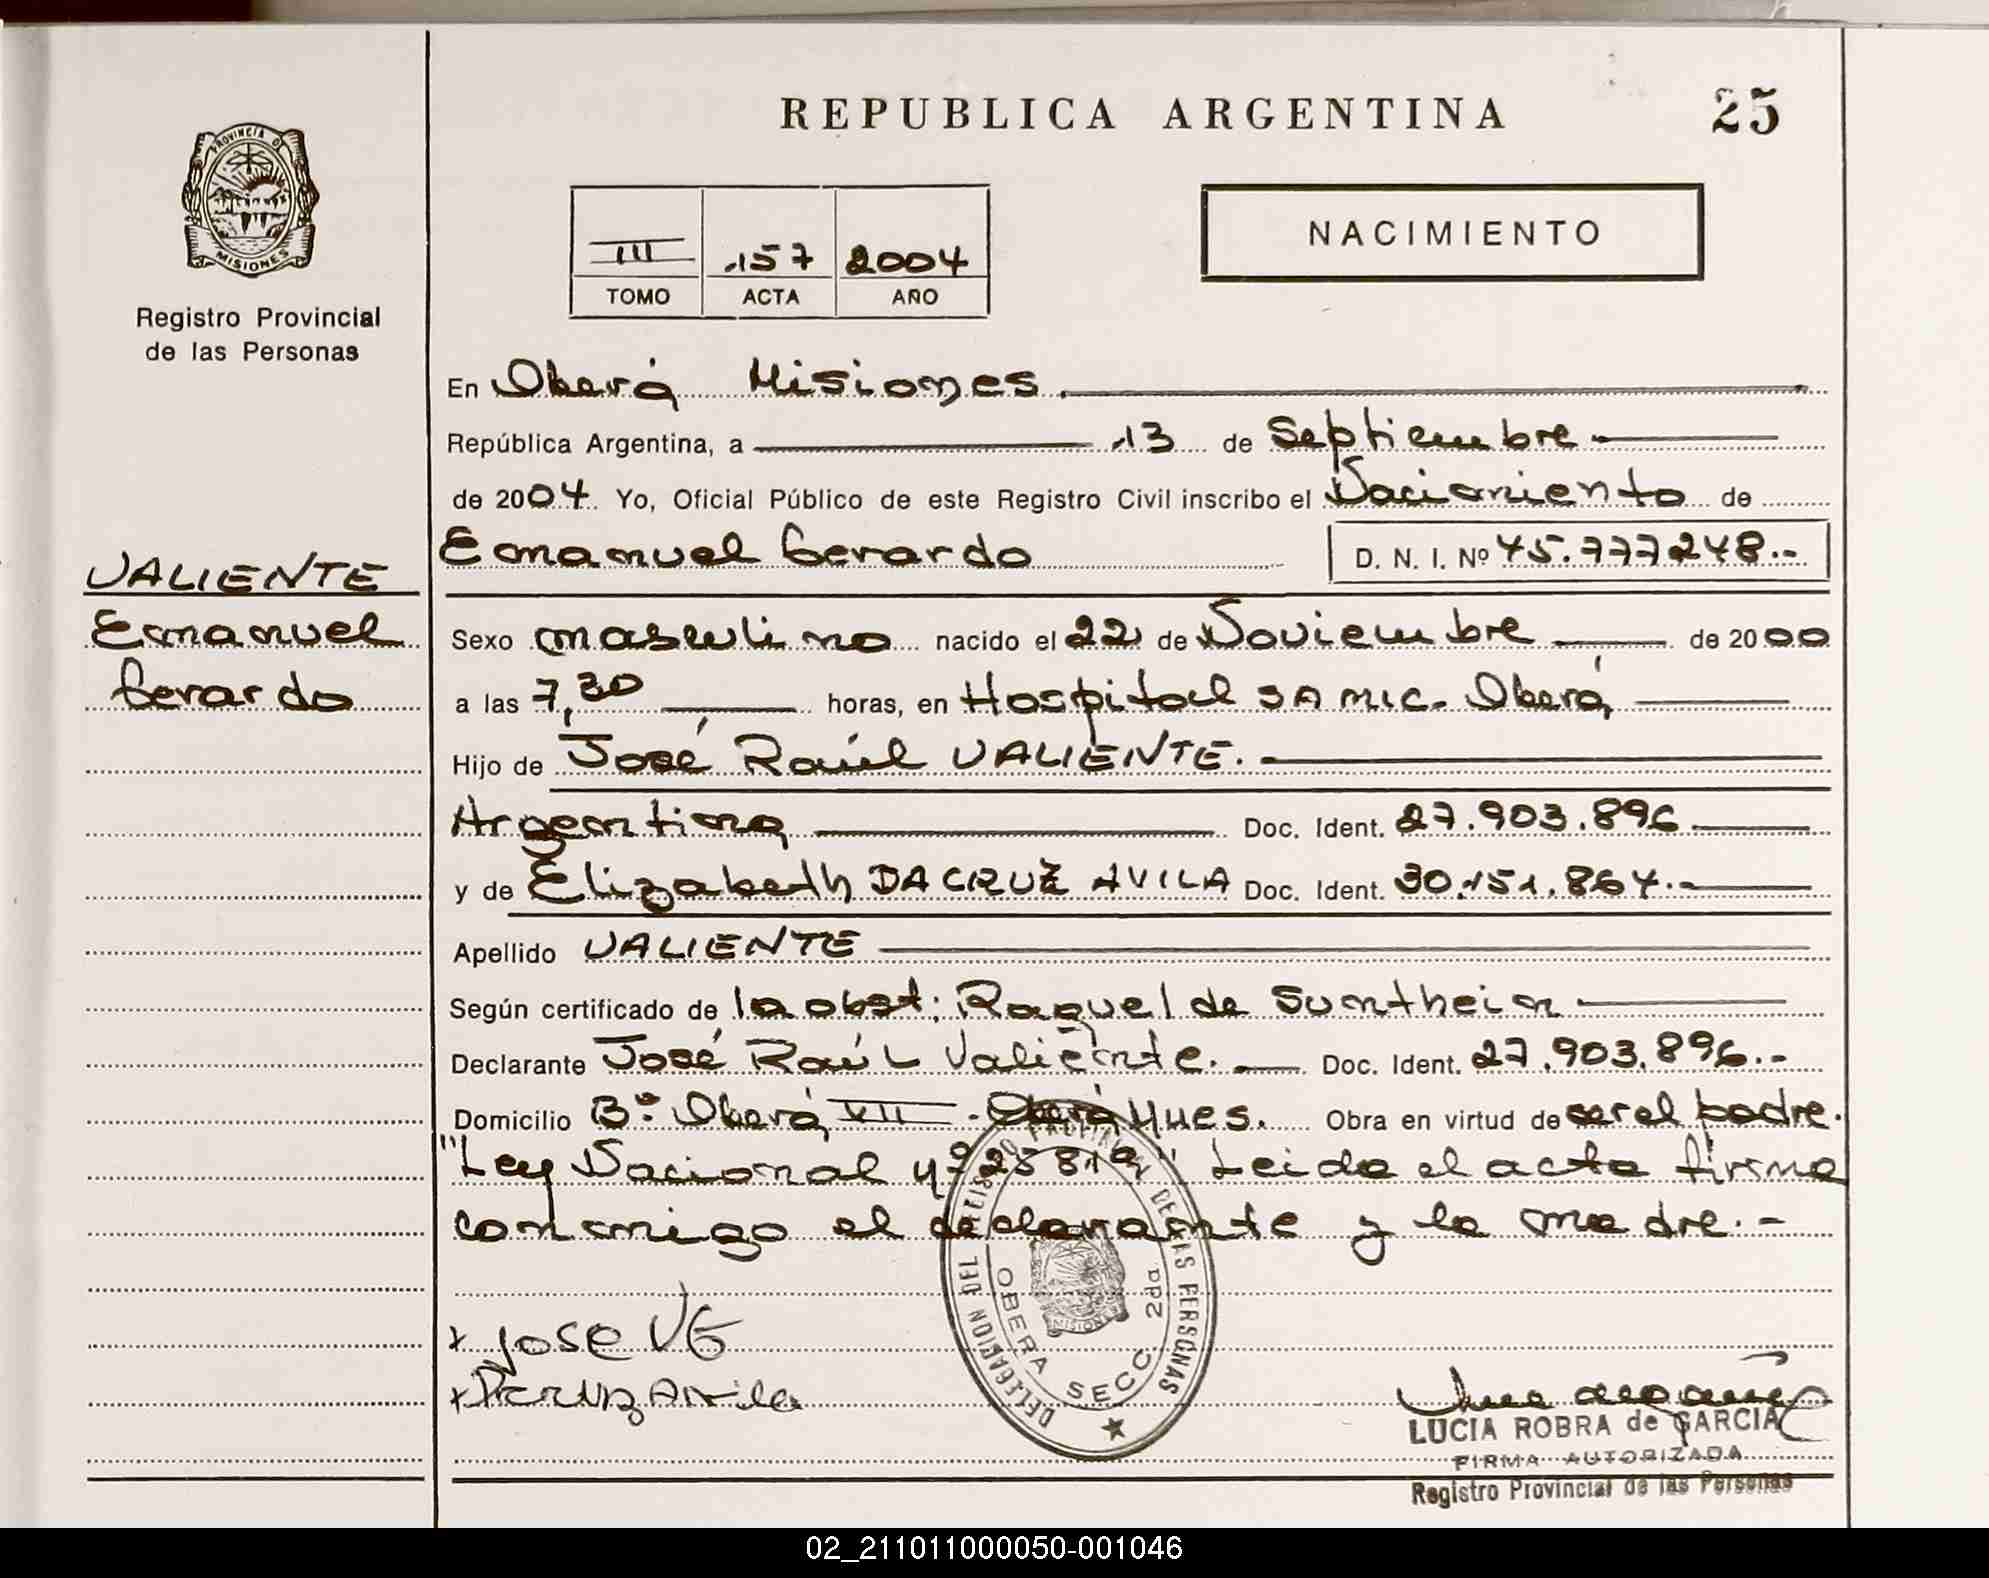 REPUBLICA ARGENTINA
25
PROVINCIA D
MISIONES
Registro Provincial
de las Personas
III 157 2004
TOMO ACTA AÑO
NACIMIENTO
En Oberá Misiones
República Argentina, a 13 de Septiembre
de 2004. Yo, Oficial Público de este Registro Civil inscribo el Nacimiento de
Emanuel Gerardo D. N. I. Nº 45.777248.-
VALIENTE
Emanuel
Gerardo
Sexo masculino nacido el 22 de Noviembre de 2000
a las 7,30 horas, en Hospital SAMIC. Oberá
Hijo de José Raúl VALIENTE.
Argentina Doc. Ident. 27.903.896
y de Elizabeth DA CRUZ AVILA Doc. Ident. 30.151.864.-
Apellido VALIENTE
Según certificado de la obst; Raquel de Sunthein
Declarante José Raúl Valiente. Doc. Ident. 27.903.896.-
Domicilio Bº Oberá VII. Oberá Mnes. Obra en virtud de ser el padre.
"Ley Nacional nº 25819" Leida el acta firma
conmigo el declarante y la madre.-
x jose VG
x Dacruz Avila
DELEGACION DEL REGISTRO PROVINCIAL DE LAS PERSONAS
OBERA SECC. 2da
MISIONES
LUCIA ROBRA de GARCIA
FIRMA AUTORIZADA
Registro Provincial de las Personas
02_211011000050-001046